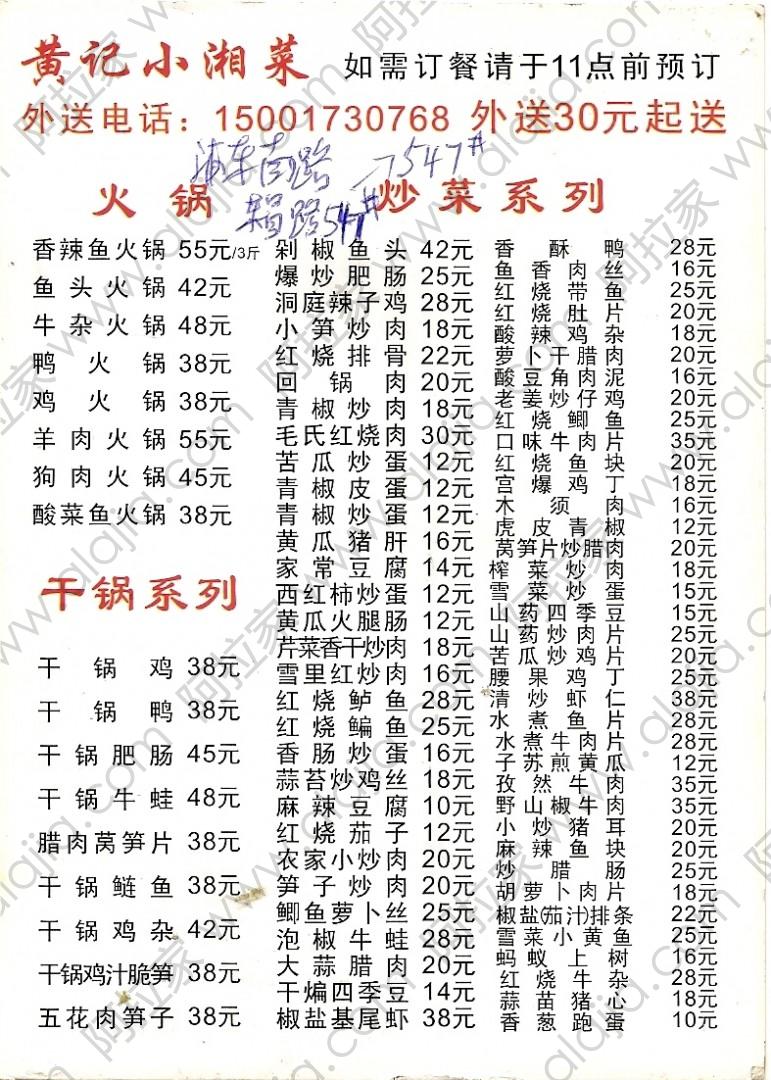 黄记小湘菜 如需订餐请于11点前预订
外送电话：15001730768 外送30元起送
浦东南路 →547#
547#
火锅
香辣鱼火锅 55元/3斤
鱼头火锅 42元
牛杂火锅 48元
鸭火锅 38元
鸡火锅 38元
羊肉火锅 55元
狗肉火锅 45元
酸菜鱼火锅 38元
干锅系列
干锅鸡 38元
干锅鸭 38元
干锅肥肠 45元
干锅牛蛙 48元
腊肉莴笋片 38元
干锅鲢鱼 38元
干锅鸡杂 42元
干锅鸡汁脆笋 38元
五花肉笋子 38元
炒菜系列
剁椒鱼头 42元
爆炒肥肠 25元
洞庭辣子鸡 28元
小笋炒肉 18元
红烧排骨 22元
回锅肉 20元
青椒炒肉 18元
毛氏红烧肉 30元
苦瓜炒蛋 12元
青椒皮蛋 12元
青椒炒蛋 12元
黄瓜猪肝 16元
家常豆腐 14元
西红柿炒蛋 12元
黄瓜火腿肠 12元
芹菜香干炒肉 18元
雪里红炒肉 16元
红烧鲈鱼 28元
红烧鳊鱼 25元
香肠炒蛋 16元
蒜苔炒鸡丝 18元
麻辣豆腐 10元
红烧茄子 12元
农家小炒肉 20元
笋子炒肉 20元
鲫鱼萝卜丝 25元
泡椒牛蛙 28元
大蒜腊肉 20元
干煸四季豆 14元
椒盐基尾虾 38元
香酥鸭 28元
鱼香肉丝 16元
红烧带鱼 25元
红烧肚片 20元
酸辣鸡杂 18元
萝卜干腊肉 20元
酸豆角肉泥 16元
老姜炒仔鸡 20元
红烧鲫鱼 25元
口味牛肉片 35元
红烧鱼块 20元
宫爆鸡丁 18元
木须肉 16元
虎皮青椒 12元
莴笋片炒腊肉 20元
榨菜炒肉 18元
雪菜炒蛋 15元
山药四季豆 15元
山药炒肉片 25元
苦瓜炒鸡片 20元
腰果鸡丁 25元
清炒虾仁 38元
水煮鱼片 28元
水煮牛肉片 28元
子苏煎黄瓜 12元
孜然牛肉 35元
野山椒牛肉 35元
小炒猪耳 20元
麻辣鱼块 20元
炒腊肠 25元
胡萝卜肉片 18元
椒盐(茄汁)排条 22元
雪菜小黄鱼 25元
蚂蚁上树 16元
红烧牛杂 28元
蒜苗猪心 18元
香葱跑蛋 10元
阿拉家 www.alajia.com